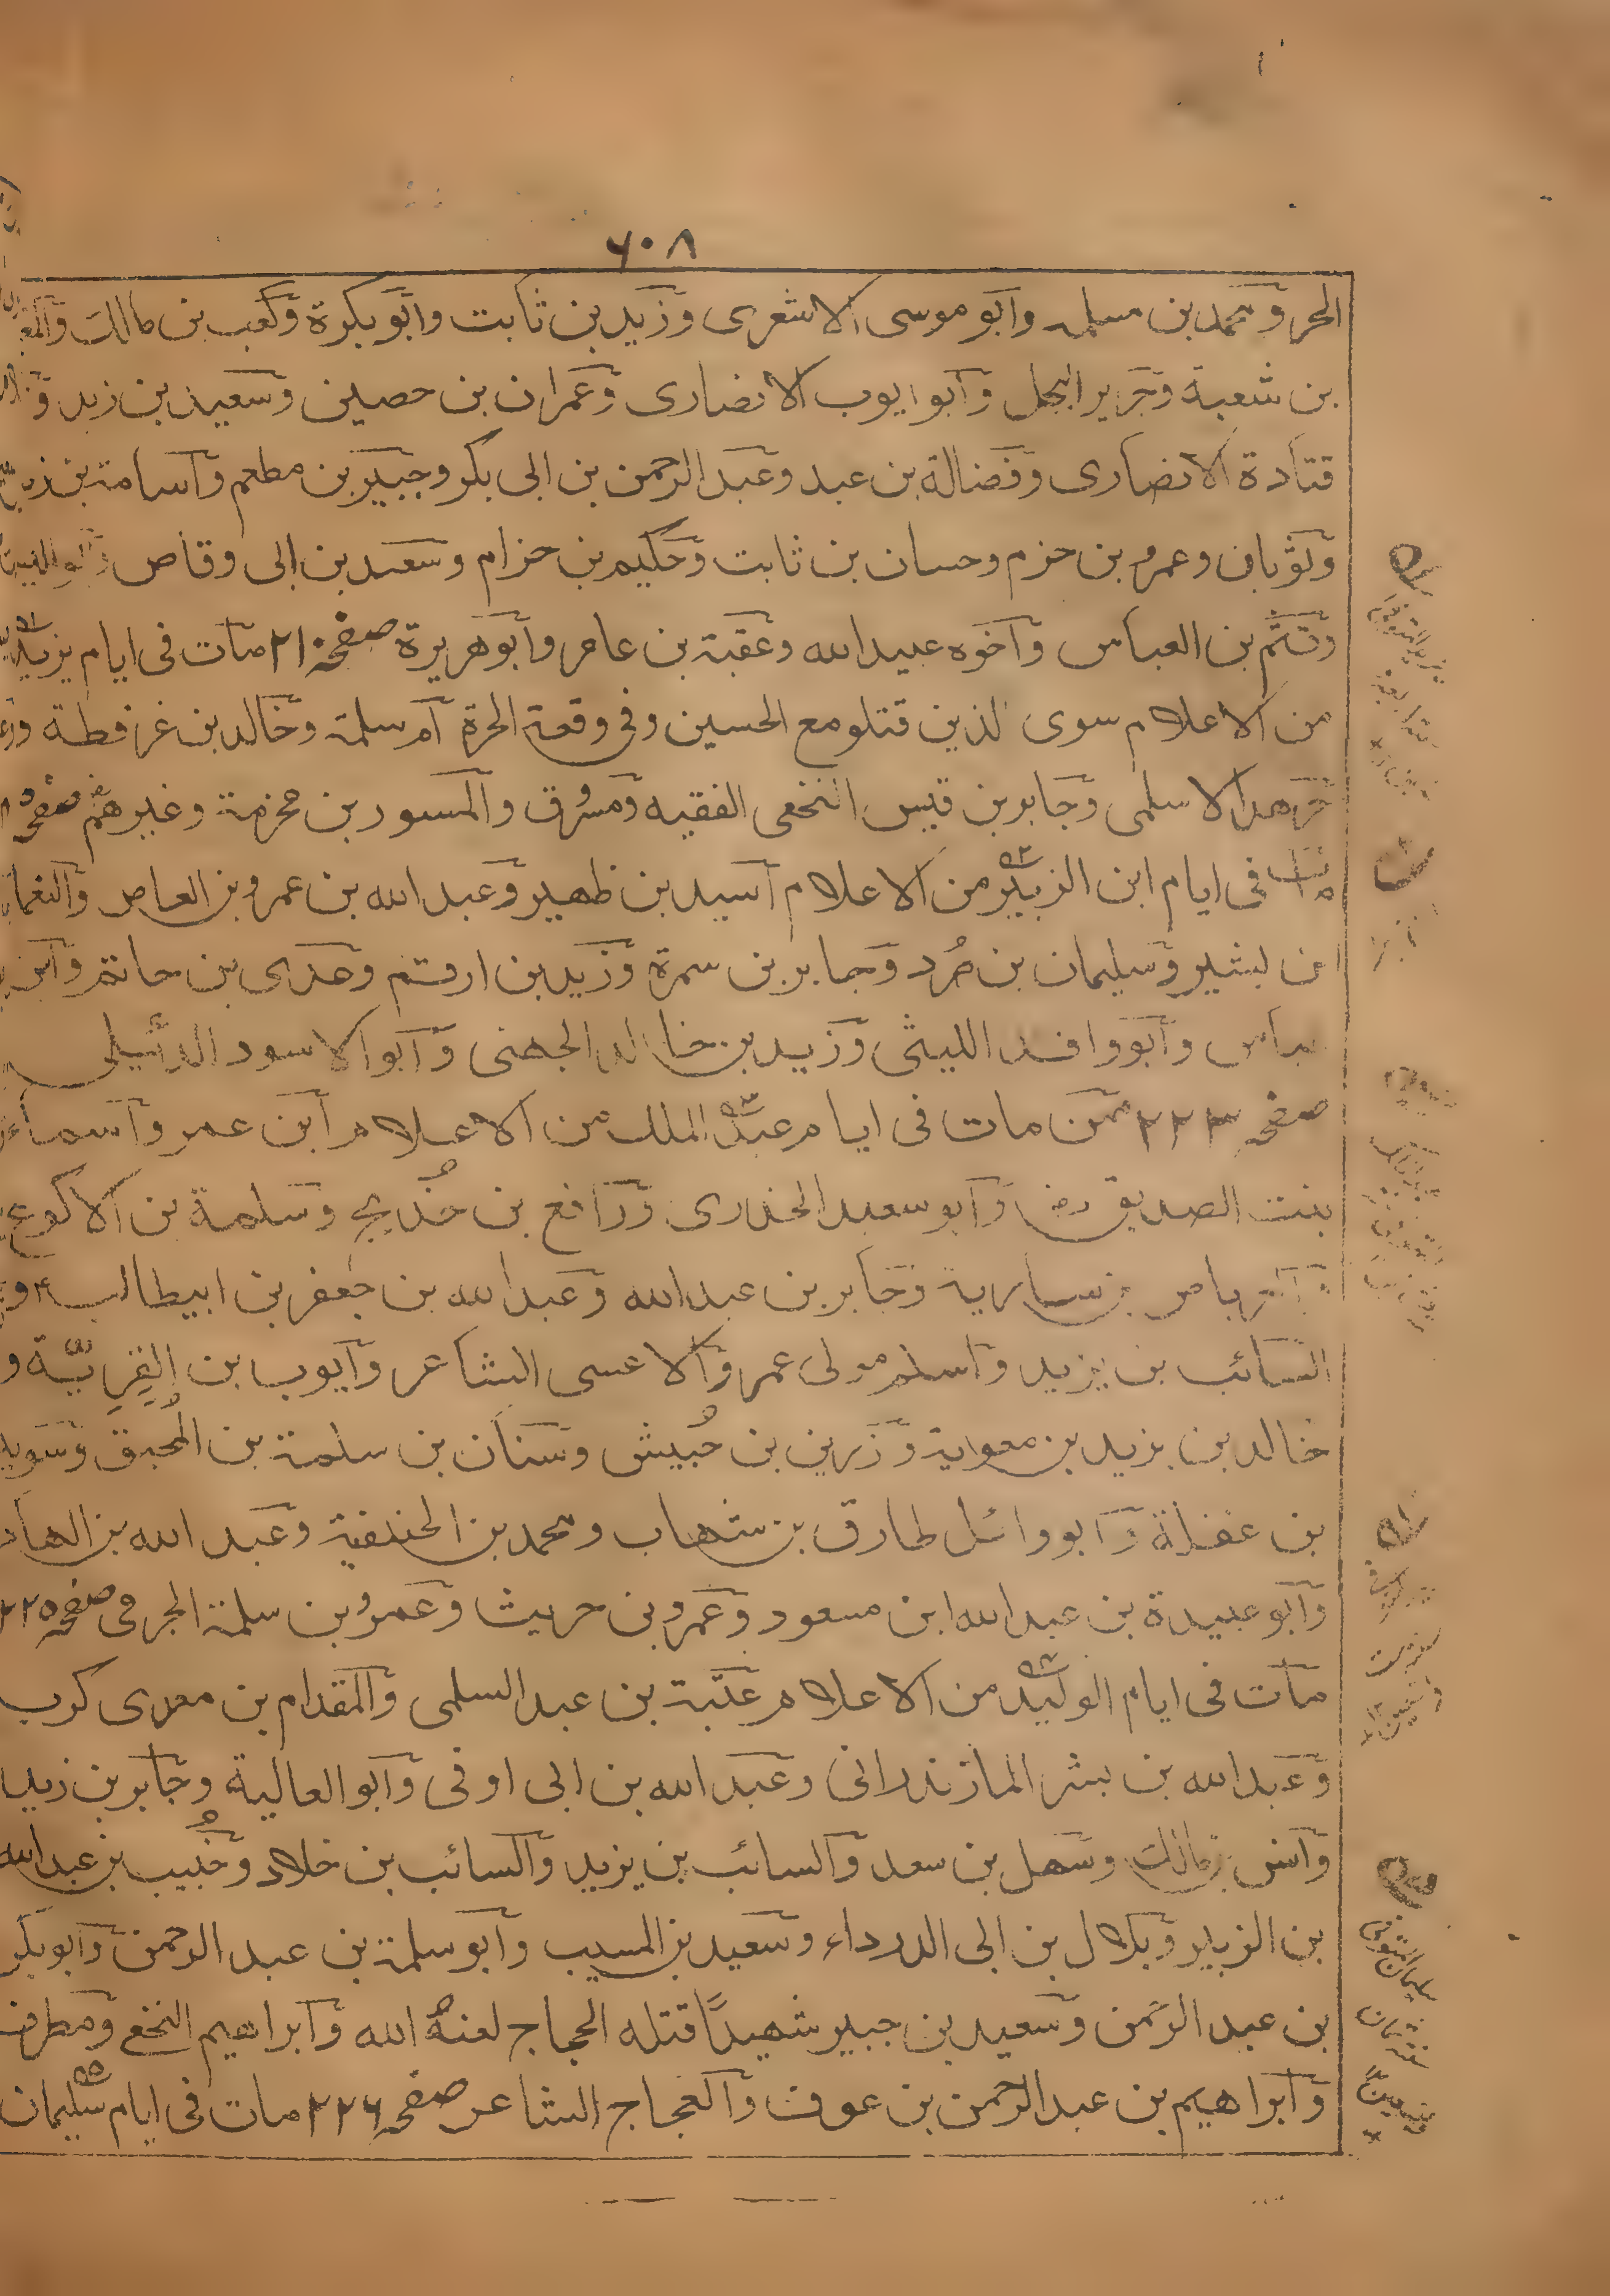 ٦٠٨
الحر ومحمد بن مسلمه وابو موسى الاشعرى وزيد بن ثابت وابو بكرة وكعب بن مالك والمغ
بن شعبة وجرير البجلى وابو ايوب الانصارى وعمران بن حصين وسعيد بن زيد و
قتادة الانصارى وفضالة بن عبد وعبد الرحمن بن ابى بكر وجبير بن مطعم واسامة بن زيد
وثوبان وعمرو بن حزم وحسان بن ثابت وحكيم بن حزام وسعد بن ابى وقاص وابو اليسر
وقثم بن العباس واخوه عبيد الله وعقبة بن عامر وابو هريرة صفحه ٢١٠ مات فى ايام يزيد
من الاعلام سوى الذين قتلو مع الحسين وفى وقعة الحرة ام سلمة وخالد بن عرفطة و
جرهد الاسلمى وجابر بن قيس النخعى الفقيه ومسروق والمسور بن مخرمة وغيرهم صفحه
مات فى ايام ابن الزبير من الاعلام اسيد بن ظهير وعبد الله بن عمرو بن العاص والنعما
ن بشير وسليمان بن صُرد وجابر بن سمرة وزيد بن ارقم وعدى بن حاتم وابن
عباس وابو واقد الليثى وزيد بن خالد الجهنى وابو الاسود الدئيلى
صفحه ٢٢٣ ممن مات فى ايام عبد الملك من الاعلام ابن عمر واسماء
بنت الصديق رض وابو سعيد الخدرى ورافع بن خُديج وسلمة بن الاكوع
والعرباض بن سارية وجابر بن عبد الله وعبد الله بن جعفر بن ابيطالب و
السائب بن يزيد واسلم مولى عمر والاعسى الشاعر وايوب بن القِرِيّة و
خالد بن يزيد بن معوية وزرين بن حُبيش وسنان بن سلمة بن المُحبق وسويد
بن غفلة وابو وائل طارق بن شهاب ومحمد بن الحنفية وعبد الله بن الهاد
وابو عبيدة بن عبد الله ابن مسعود وعمرو بن حريث وعمرو بن سلمة الجرمى صفحه ٢٢٥
مات فى ايام الوليد من الاعلام عتبة بن عبد السلمى والمقدام بن معدى كرب
وعبد الله بن بشر المازندرانى وعبد الله بن ابى اوفى وابو العالية وجابر بن زيد
وانس بن مالك وسهل بن سعد والسائب بن يزيد والسائب بن خلاد وخُبيب بن عبد الله
بن الزبير وبلال بن ابى الدرداء وسعيد بن المسيب وابو سلمة بن عبد الرحمن وابو بكر
بن عبد الرحمن وسعيد بن جبير شهيدًا قتله الحجاج لعنهُ الله وابراهيم النخعى ومطرف
وابراهيم بن عبد الرحمن بن عوف والعجاج الشاعر صفحه ٢٢٦ مات فى ايام سليمان